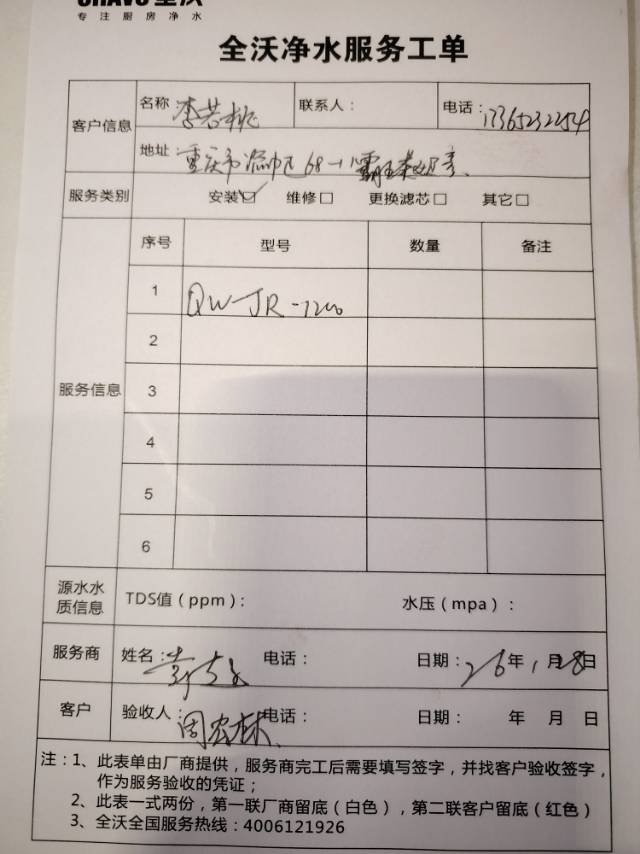 全沃
专注厨房净水
全沃净水服务工单
客户信息 名称 李若桃 联系人： 电话：
地址 重庆市 68-11霸王茶姬
服务类别 安装☑ 维修□ 更换滤芯□ 其它□
服务信息 序号 型号 数量 备注
1 QW-JR-1200
2
3
4
5
6
源水水质信息 TDS值（ppm）： 水压（mpa）：
服务商 姓名： 电话： 日期：26年1月28日
客户 验收人： 电话： 日期： 年 月 日
注：1、此表单由厂商提供，服务商完工后需要填写签字，并找客户验收签字，
作为服务验收的凭证；
2、此表一式两份，第一联厂商留底（白色），第二联客户留底（红色）
3、全沃全国服务热线：4006121926